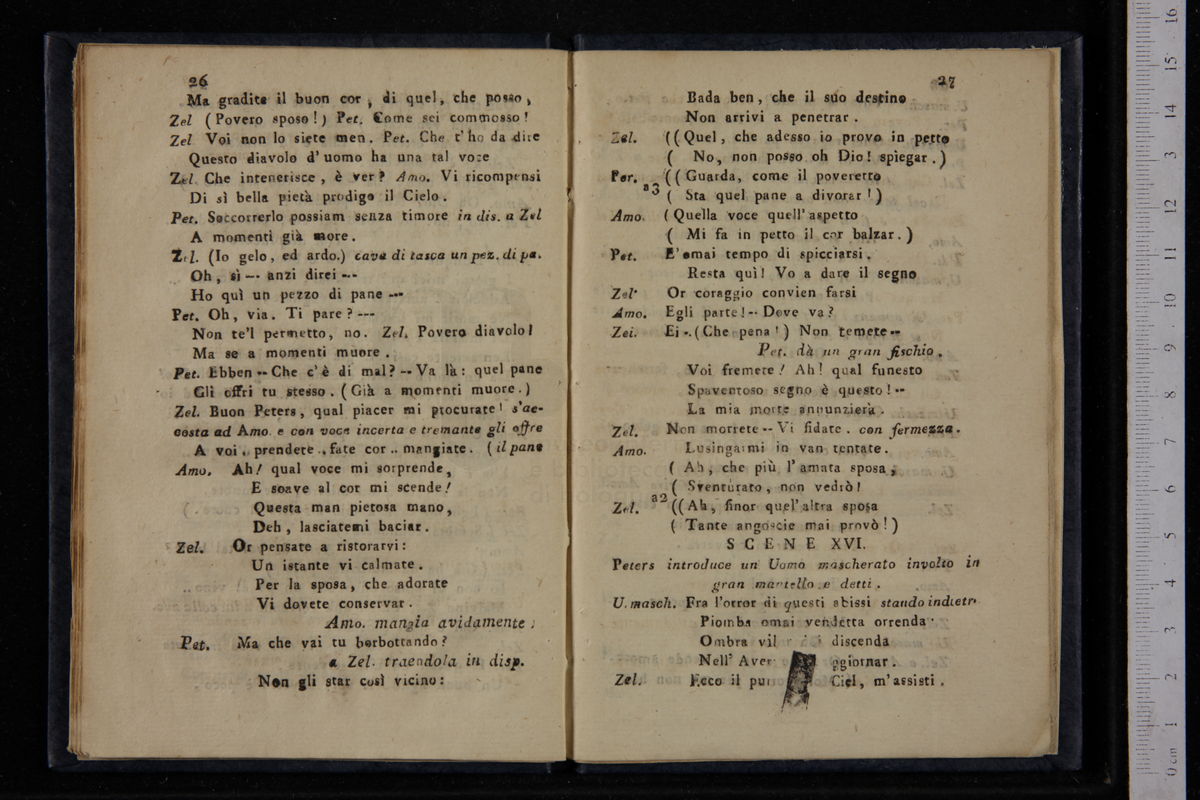 26
Ma gradite il buon cor, di quel, che posso,
Zel (Povero sposo!) Pet. Come sei commosso!
Zel Voi non lo siete men. Pet. Che t'ho da dire
Questo diavolo d'uomo ha una tal voce
Zel. Che intenerisce, è ver? Amo. Vi ricompensi
Di sì bella pietà prodigo il Cielo.
Pet. Soccorrerlo possiam senza timore in dis. a Zel
A momenti già more.
Zel. (Io gelo, ed ardo.) cava di tasca un pez. di pa.
Oh, sì -- anzi direi ---
Ho quì un pezzo di pane ---
Pet. Oh, via. Ti pare? ---
Non te'l permetto, no. Zel. Povero diavolo!
Ma se a momenti muore.
Pet. Ebben -- Che c'è di mal? -- Va là: quel pane
Gli offri tu stesso. (Già a momenti muore.)
Zel. Buon Peters, qual piacer mi procurate! s'ac-
costa ad Amo. e con voce incerta e tremante gli offre
A voi.. prendete.. fate cor.. mangiate. (il pane
Amo. Ah! qual voce mi sorprende,
E soave al cor mi scende!
Questa man pietosa mano,
Deh, lasciatemi baciar.
Zel. Or pensate a ristorarvi:
Un istante vi calmate.
Per la sposa, che adorate
Vi dovete conservar.
Amo. mangia avidamente;
Pet. Ma che vai tu borbottando?
a Zel. traendola in disp.
Non gli star così vicino:
27
Bada ben, che il suo destino
Non arrivi a penetrar.
Zel. ((Quel, che adesso io provo in petto
( No, non posso oh Dio! spiegar.)
Per. ((Guarda, come il poveretto
a3 ( Sta quel pane a divorar!)
Amo. (Quella voce quell'aspetto
( Mi fa in petto il cor balzar.)
Pet. E' omai tempo di spicciarsi.
Resta quì! Vo a dare il segno
Zel. Or coraggio convien farsi
Amo. Egli parte! -- Dove va?
Zei. Ei -. (Che pena!) Non temete --
Pet. dà un gran fischio.
Voi fremete! Ah! qual funesto
Spaventoso segno è questo! --
La mia morte annunzierà.
Zel. Non morrete -- Vi fidate. con fermezza.
Amo. Lusingarmi in van tentate.
( Ah, che più l'amata sposa,
( Sventurato, non vedrò!
a2
Zel. ((Ah, finor quel'altra sposa
( Tante angoscie mai provò!)
SCENE XVI.
Peters introduce un Uomo mascherato involto in
gran mantello e detti.
U. masch. Fra l'orror di questi abissi stando indietr
Piomba omai vendetta orrenda
Ombra vil discenda
Nell' Aver ggiornar.
Zel. Ecco il pun Ciel, m'assisti.